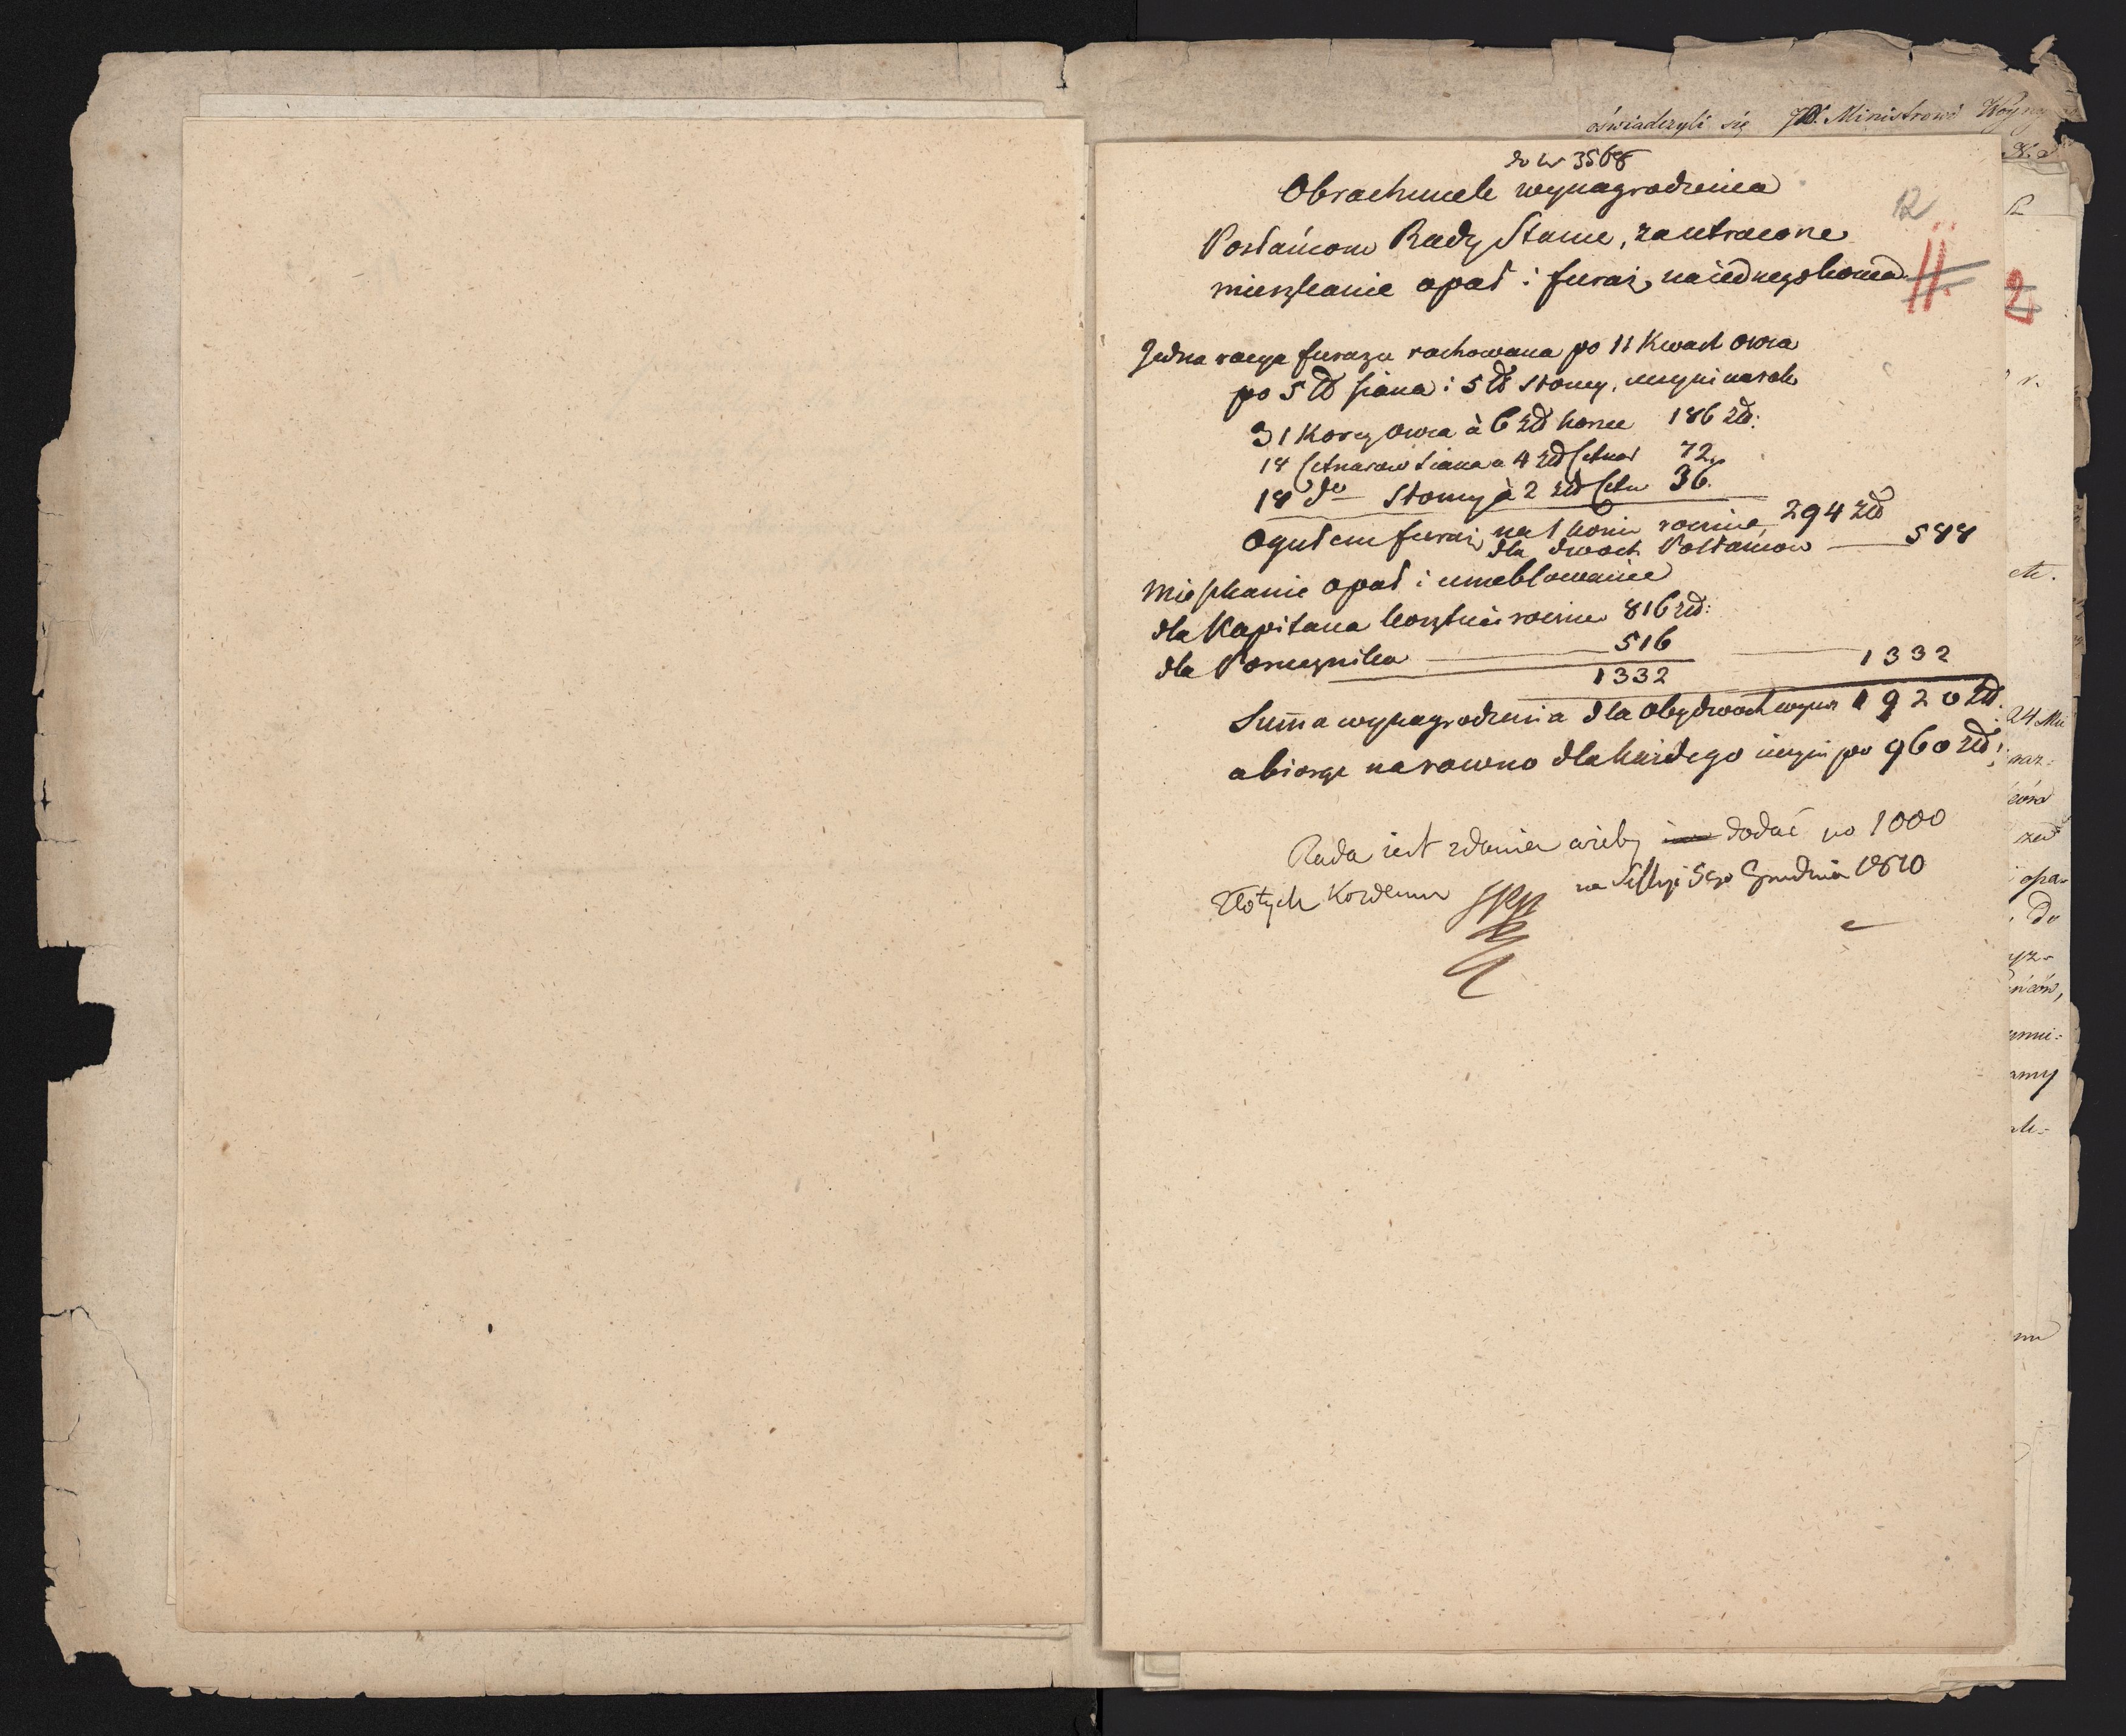 oświadczyli się JW. Ministrowi Woyny
do Nr 3568
Obrachunek wynagrodzenia
12
Posłańcom Rady Stanu, za utracone
mieszkanie opał i furaż na iednego konia
11.
2
Jedna racya furażu rachowana po 11 Kwart owsa
po 5 ℔ siana i 5 ℔ słomy, uczyni na rok
31 Korcy owsa à 6 zł korzec 186 zł:
18 Cetnarow siana a 4 zł Cetnar 72.
18 do Słomy à 2 zł Cetn 36.
Ogułem furaż na 1 konia rocznie 294 zł
dla dwoch Posłańcow 588
Mieszkanie opał i umeblowanie
dla Kapitana kosztuie rocznie 816 zł:
dla Porucznika 516
1332 1332
Summa wynagrodzenia dla obydwoch wynosi 1920 zł.
a biorąc na rowno dla każdego uczyni po 960 zł:
Rada iest zdania ażeby dodać po 1000
Złotych Każdemu na Sessyi 5go Grudnia 1810
etc.
24
opa-
do